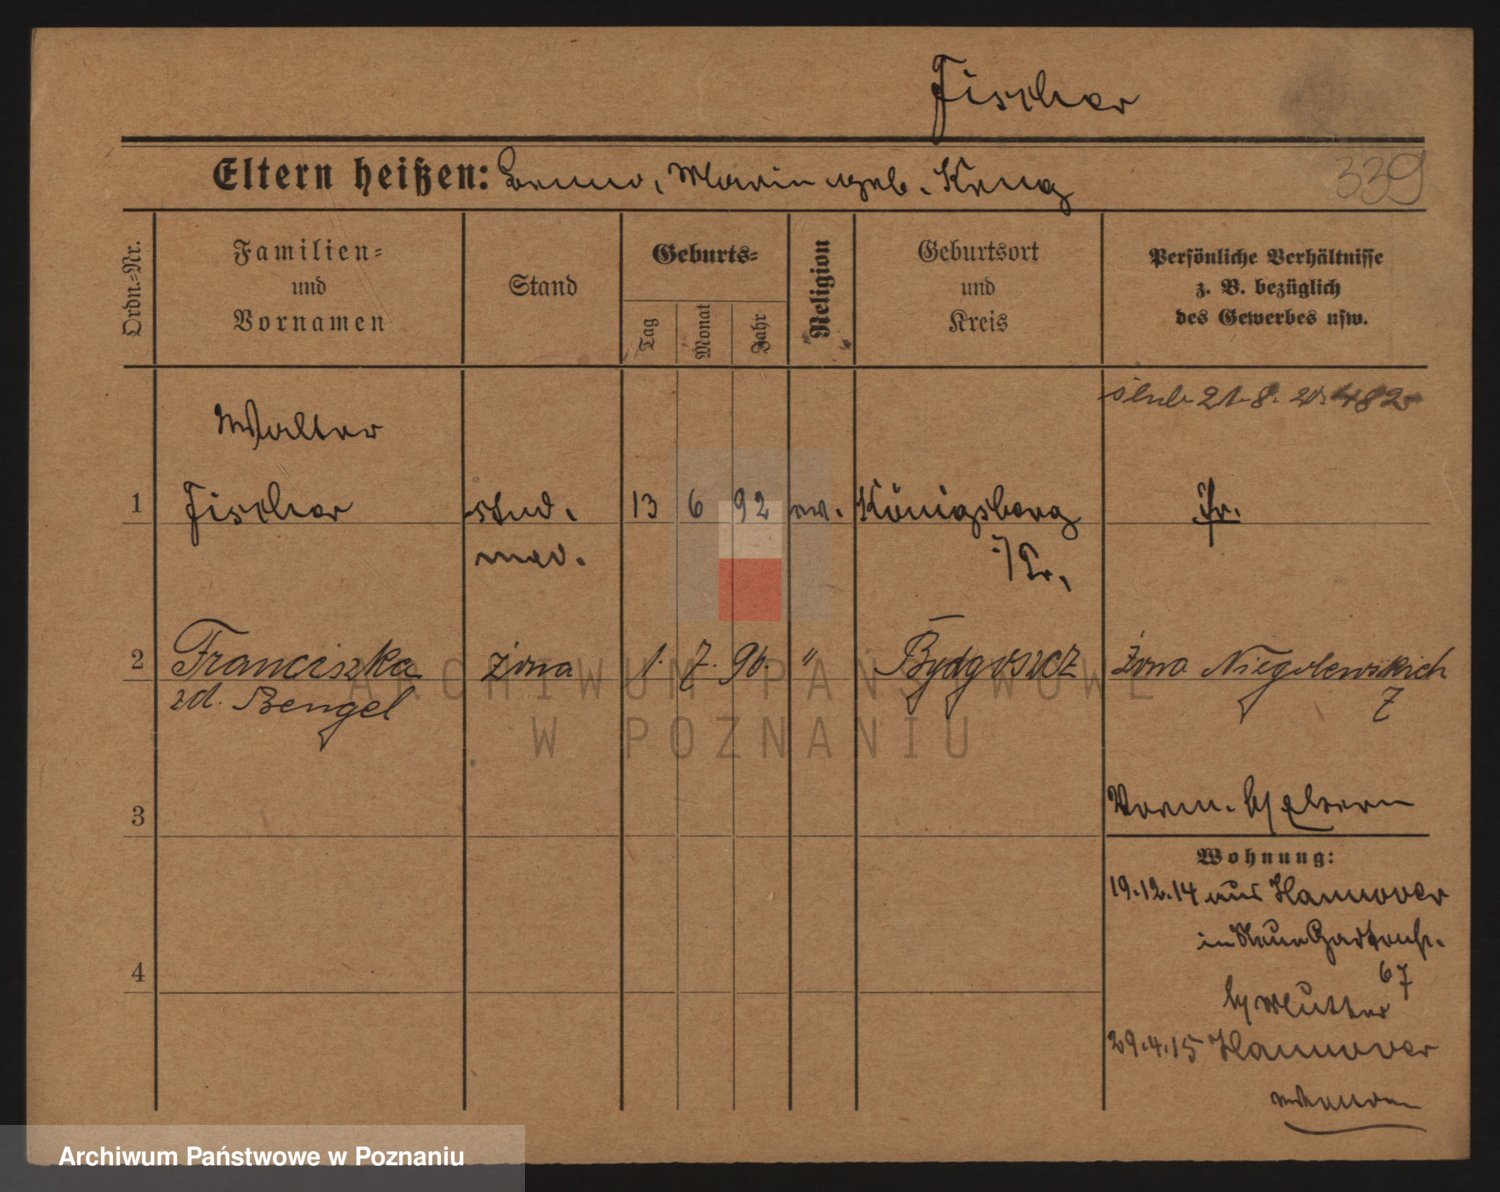 Fischer
Eltern heißen: Benno, Marie geb. Krug
339
Ordn.-Nr.
Familien-
und
Vornamen
Stand
Geburts-
Tag
Monat
Jahr
Religion
Geburtsort
und
Kreis
Persönliche Verhältnisse
z. B. bezüglich
des Gewerbes usw.
ślub 21.8.
Walter
1 Fischer stud. 13 6 92 ev. Königsberg Pr.
med. i/Pr.
2 Franciszka żona 1. 7. 96. " Bydgoszcz żona Niegolewskich
zd. Bengel 7
3
Vorm. b/ Eltern
Wohnung:
19.12.14 aus Hannover
in Neue Gartenstr.
67
b/ Mutter
29.4.15 Hannover
4
ARCHIWUM PAŃSTWOWE
W POZNANIU
Archiwum Państwowe w Poznaniu